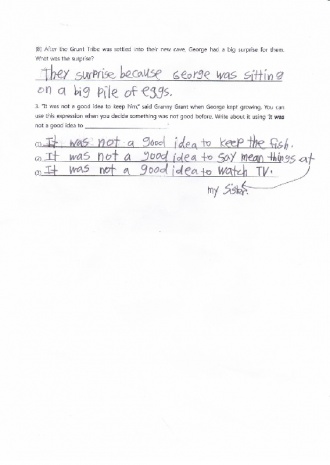 After the Grunt Tribe was settled into their new cave, George had a big surprise for them.
What was the surprise?
They surprise because George was sitting
on a big pile of eggs.
3. "It was not a good idea to keep him," said Granny Grunt when George kept growing. You can
use this expression when you decide something was not good before. Write about it using 'It was
not a good idea to
(1) It was not a good idea to keep the fish.
(2) It was not a good idea to say mean things at
(3) It was not a good idea to watch TV.
my Sister.